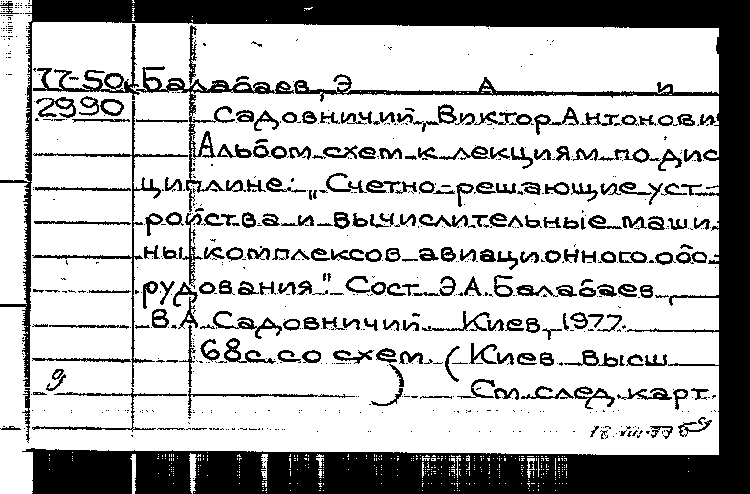 77-50к Балабаев, Э А и
2990 Садовничий, Виктор Антонови
Альбом схем к лекциям по дис
циплине: „Счетно-решающие уст-
ройства и вычислительные маши
ны комплексов авиационного обо-
рудования". Сост. Э.А. Балабаев,
В.А. Садовничий. Киев, 1977.
68с. со схем. (Киев. высш
9 ) См. след. карт.